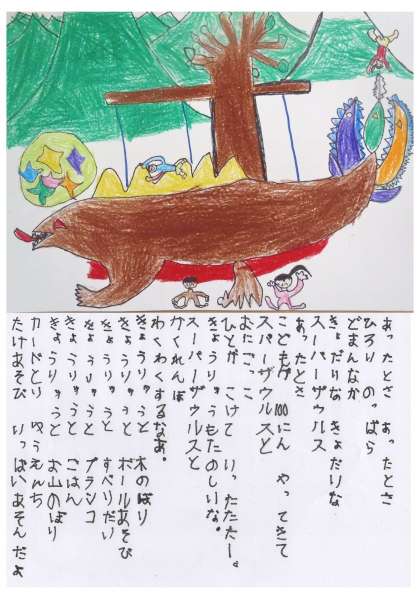 あったとさ あったとさ
ひろい のっぱら
どまんなか
きょだいな きょだいな
スーパーザウルス
あったとさ
こどもが 100にん やってきて
スパーザウルスと
おにごっこ
ひとが こけて いったたたー。
きょうりゅうもたのしいな。
スーパーザウルスと
かくれんぼ
わくわくするなあ。
きょうりゅうと 木のぼり
きょうりゅうと ボールあそび
きょうりゅうと すべりだい
きょうりゅうと ブランコ
きょうりゅうと ごはん
きょうりゅうと お山のぼり
カードとり ゆうえんち
たけあそび いっぱいあそんだよ